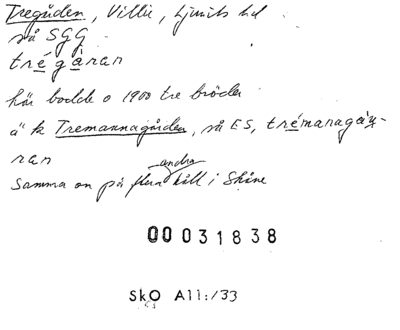 Tregården, Villie, Ljunits hd
så SGG
trégàran
här bodde o 1900 tre bröder
ä' k Tremannagården, så ES, trémanagáṛ-
ran
andra
Samma on på flera håll i Skåne
00031838
SkO All:/33